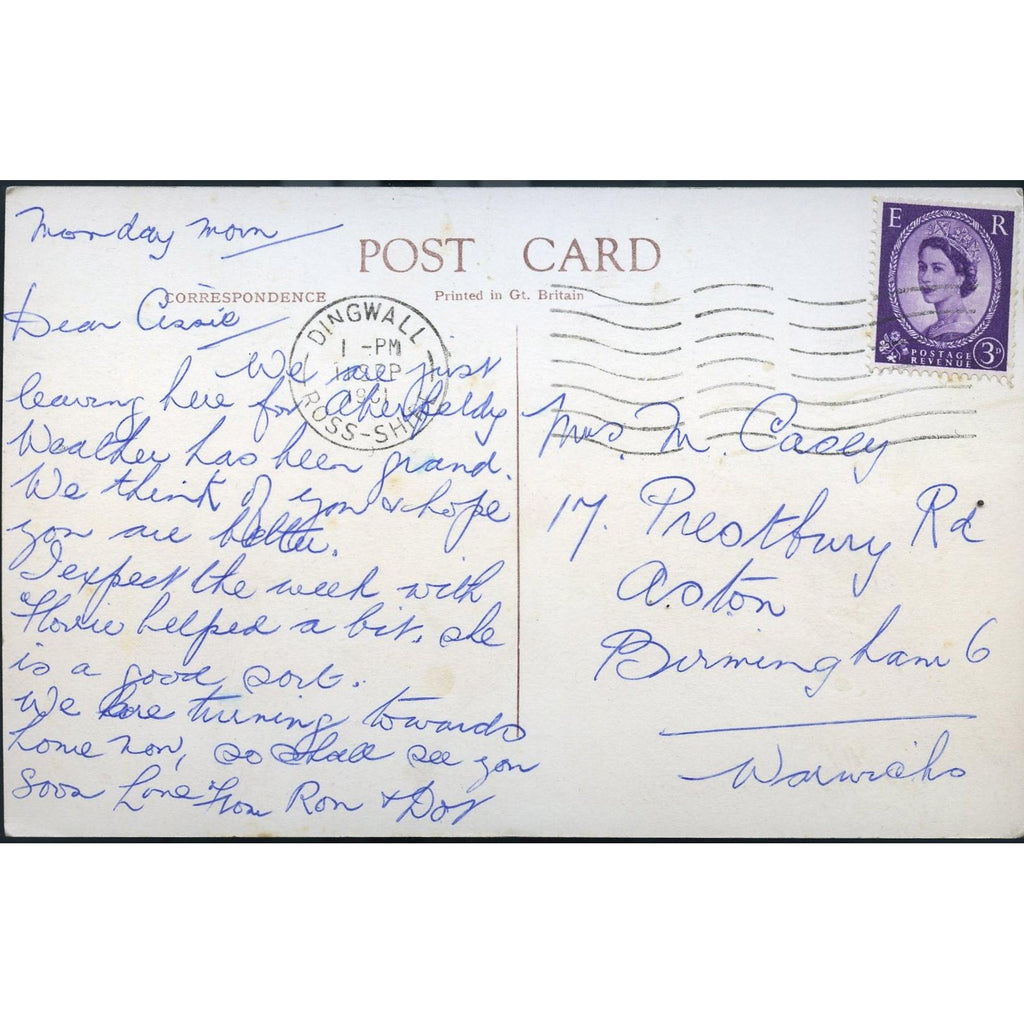 Monday Morn
POST CARD
CORRESPONDENCE
Printed in Gt. Britain
Dear Cissie
We are just
leaving here for Aberfeldy
Weather has been grand.
We think of you & hope
you are better.
I expect the week with
Florie helped a bit, she
is a good sort.
We are turning towards
home now, so shall see you
soon Love from Ron & Dot
DINGWALL
1 -PM
SEP
ROSS-SHIRE
E R
POSTAGE
REVENUE
3D
Mrs. M. Casey
17. Prestbury Rd
Aston
Birmingham 6
Warwicks